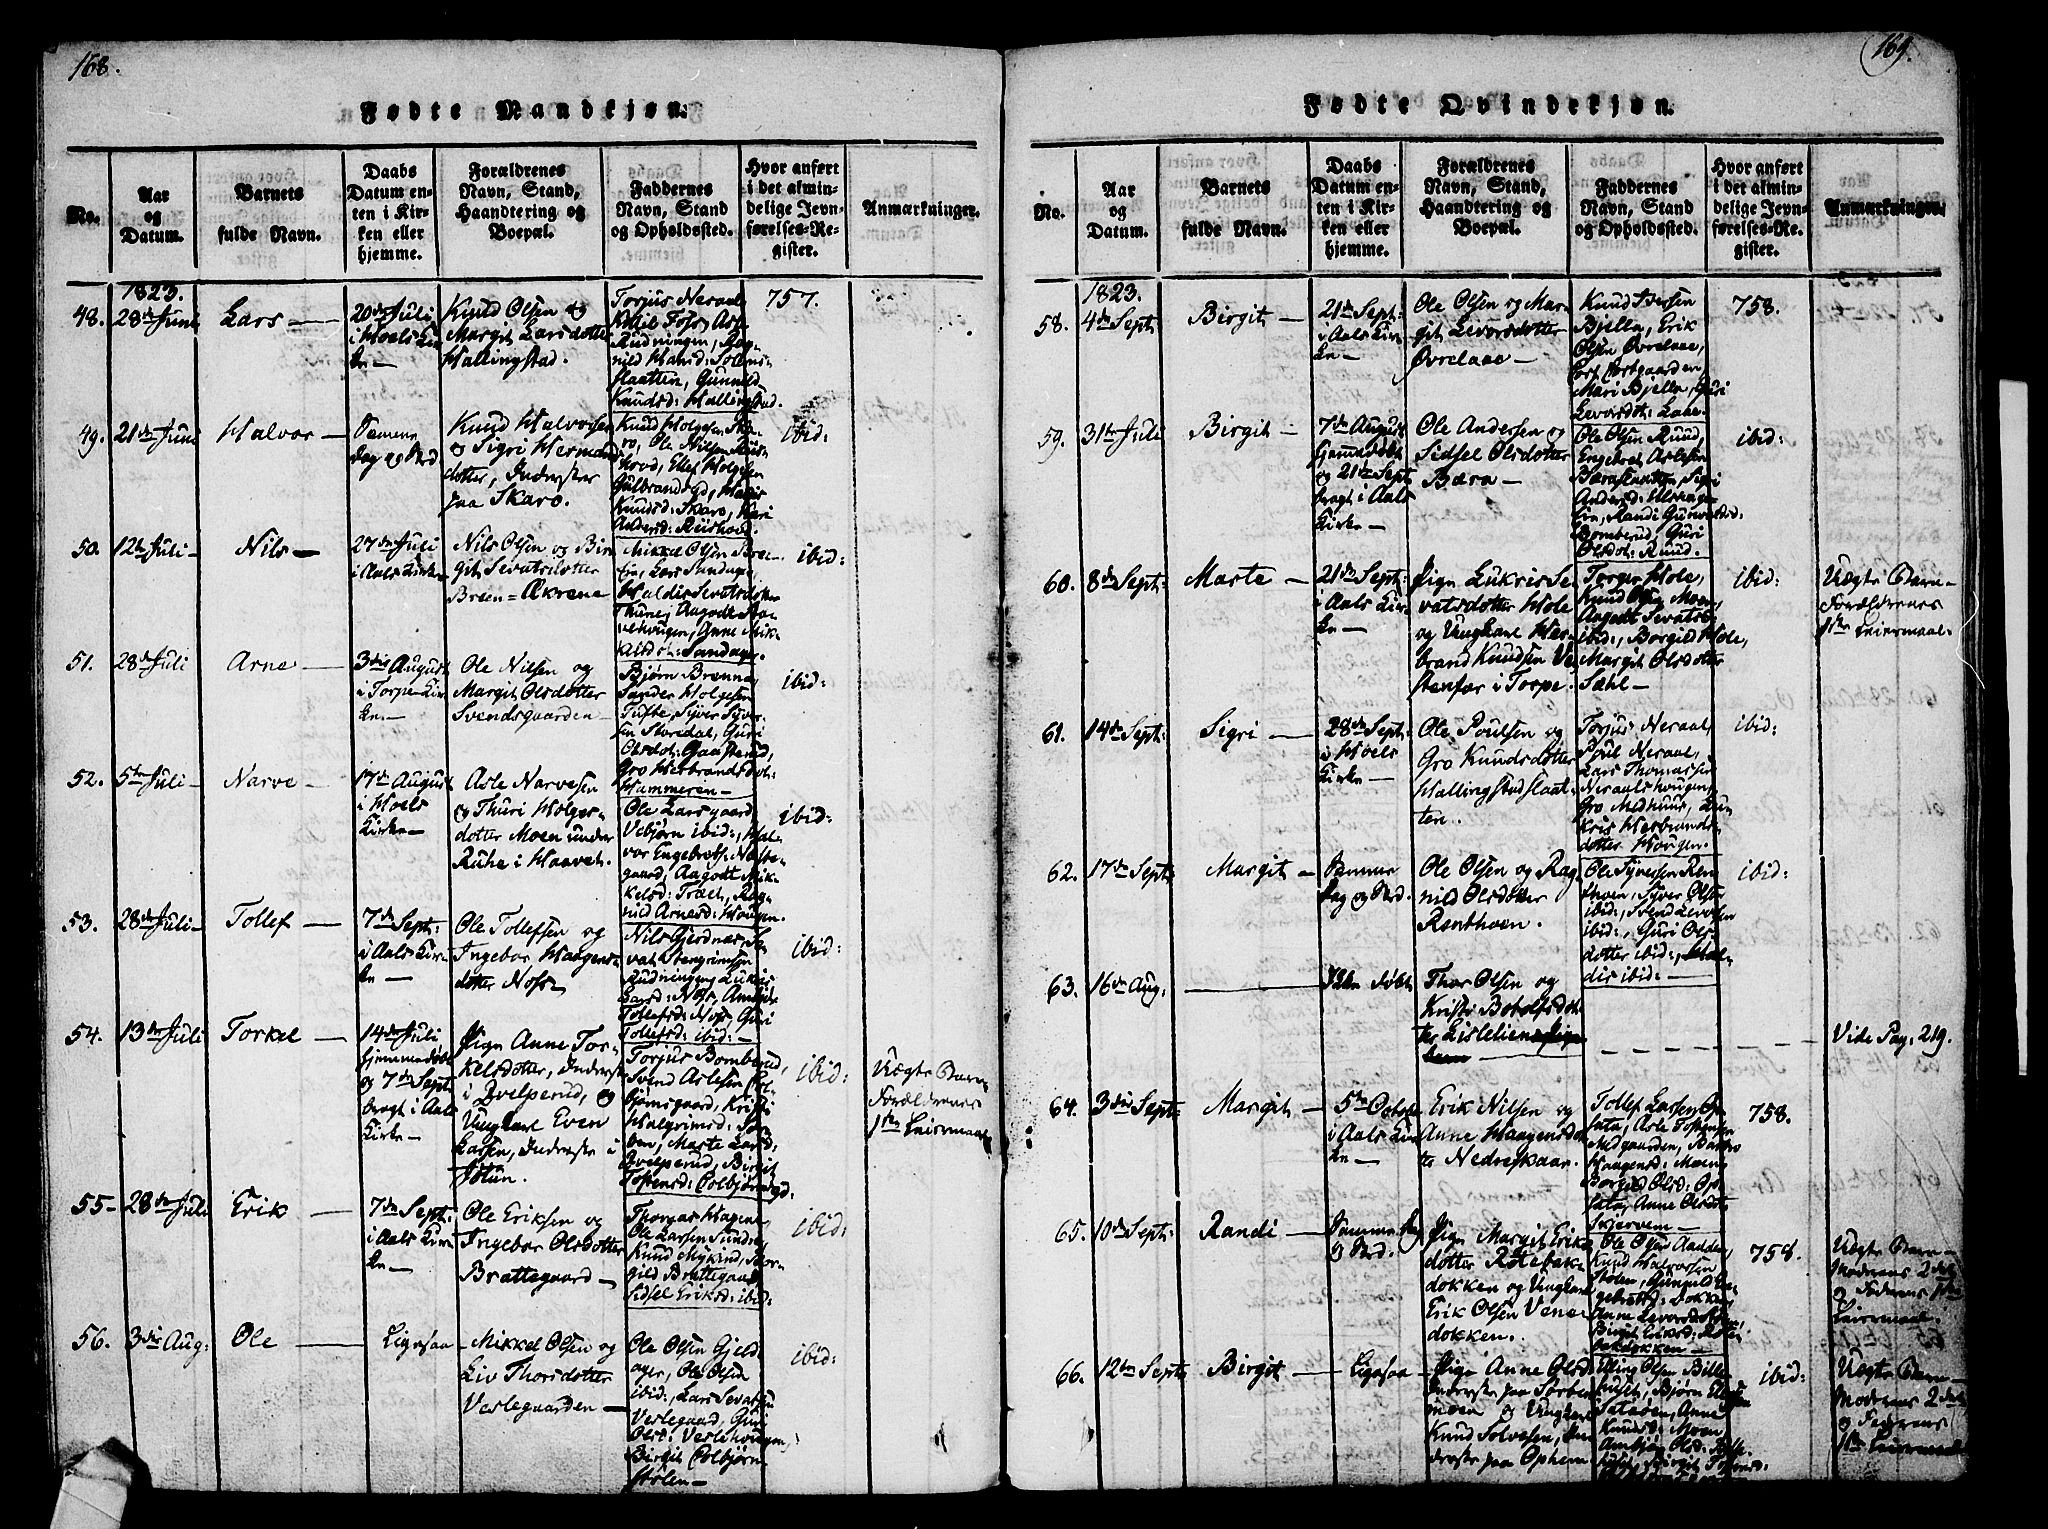 168.
Fødte Mandkjøn.
No.
Aar
og
Datum.
Barnets
fulde Navn.
Daabs
Datum en-
ten i Kir-
ken eller
hjemme.
Forældrenes
Navn, Stand,
Haandtering og
Boepæl.
Faddernes
Navn, Stand
og Opholdssted.
Hvor anført
i det almin-
delige Jevn-
førelses-Re-
gister.
Anmærkninger.
1823.
48.
28de Juni
Lars
20de Juli
i Hoels Kir-
ke
Knud Olsen og
Margit Larsdotter
Hallingstad.
Torjus Neraal
Kittil Foss, Asle
Rudningen, Rag-
nild Hansd: Solems-
slaatten, Gunnild
Knudsd: Hallingstad.
757.
49.
21de Juni
Halvor
Samme
Dag og Sted
Knud Halvorsen
og Sigri Hermans
dotter, Inderster
paa Skaro.
Knud Holgesen Ska-
ro, Ole Nilsen
Ellef Holgesen
Gulbrandsgd,
Knudsd: Skaro, Kari
ibid:
50.
12te Juli
Nils
27de Juli
i Aals Kirke
Nils Olsen og Bir
git Sevatsdotter
Breen-Ækrene
Mikkel Olsen Bre-
en, Lars Sundage,
Haldis Sevatsdotter
Thune, Aagodt
hougen, Anne Mik-
kelsd: Sandager.
ibid:
51.
28de Juli
Arne
3die August
i Torpe Kir-
ke
Ole Nilsen og
Margit Olsdotter
Svendsgaarden
Bjørn Brenna,
Sander Holgesen
Tufte, Syver Syver-
sen Storedal, Guri
Olsdot:
Gro Herbrandsdot:
Hammeren
ibid:
52.
5te Juli
Narve
17de August
i Hoels
Kirke
Asle Narvesen
og Thuri Holger-
dotter Moen under
Ruhe i Haavet.
Ole Larsgaard,
Vebjørn ibid:, Hal-
vor Engebrets: Nøste-
gaard, Aagott Mik-
kelsd: Træet, Rag-
nild Arnesd: Hougen.
ibid:
53.
28de Juli
Tollef
7de Sept:
i Aals Kir-
ke
Ole Tollefsen og
Ingebor Haagens
dotter Noss
Nils Gjerdnæs, Se
vat Stengrimsen
Rudningen, Lukris
Larsd: Noss,
Tollefsd: Noss, Guri
Tollefsd: ibid:
ibid:
54.
13de Juli
Torkel
14de Juli
hjemmedøbt
og 7de Sept
bragt i Aals
Kirke
Pign Anne Tor-
kelsdotter, Inderste
i Qvelperud, og
Ungkarl Even
Larsen, Inderste i
Jotun.
Torjus Bomberud,
Svend Aslesen Col-
bjørnsgaard, Kristi
Halgrimsd: Tor-
Marte Larsd:
Qvelperud, Birgit
Tostensd: Colbjørnsgd:
ibid:
Uægte Barn
Forældrenes
1ste Leiermaal
55
28de Juli
Erik
7de Sept:
i Aals Kir-
ke
Ole Eriksen og
Ingebor Olsdotter
Brattegaard
Thorgas Hagene,
Ole Larsen Sundre,
Knud Mykind, Bor-
gild Brattegaard
Sidsel Eriksd: ibid:
ibid:
56.
3die Aug:
Ole
Ligesaa
Mikkel Olsen og
Liv Thorsdotter
Veslegaarden
Ole Olsen Gjeld-
ager, Ole Olsen
ibid:, Lars Sevatsen
Veslegaard, Guri
Olsd: Veslehougen,
Birgit Colbjørn
Stolen
ibid:
169.
Fødte Qvindekjøn.
No.
Aar
og
Datum.
Barnets
fulde Navn.
Daabs
Datum en-
ten i Kir-
ken eller
hjemme.
Forældrenes
Navn, Stand,
Haandtering og
Boepæl.
Faddernes
Navn, Stand
og Opholdssted.
Hvor anført
i det almin-
delige Jevn-
førelses-Re-
gister.
Anmærkninger.
1823.
58.
4de Sept
Birgit
21de Sept
i Aals Kir-
ke
Ole Olsen og Mar-
git Levorsdotter
Øvrelaae
Knud Iversen
Bjella, Erik
Olsen Øvrelaae,
Mari Bjella, Guri
Levorsdot: Laae.
758.
59.
31te Juli
Birgit
7de August
hjemmedøbt
og 21de Sept
bragt i Aals
Kirke
Ole Andersen og
Sidsel Olsdotter
Bæra
Ole Olsen Ruud,
Engebret Aslesen
Bæraslaatten, Sigri
Andersd:
Randi Gunvaldsd:
Bomberud, Guri
Olsdot: Ruud.
ibid:
60.
8de Sept:
Marte
21de Sept:
i Aals Kir-
ke
Pign Lukris Se
vatsdotter Hole
og Ungkarl Her-
brand Knudsen Ve
stenfor i Torpe.
Torger Hole,
Knud Olsen Moen,
Aagott Sevatsd:
ibid:, Borgild Hole,
Margit Olsdotter
Sæhl
ibid:
Uægte Barn
Forældrenes
1ste Leiermaal
61.
14de Sept:
Sigri
28de Sept:
i Hoels
Kirke
Ole Poulsen og
Gro Knudsdotter
Hallingstadslaat-
ten.
Torjus Neraal
Poul Neraal,
Lars Thomassen
Neraalshougen,
Gro Medhuus, Lu-
kris Herbrands-
dotter Hougen.
ibid:
62.
17de Sept:
Margit
Samme
Dag og Sted
Ole Olsen og Rag
nild Olsdotter
Renthoen.
Ole Syversen Ren
thoen, Syver Olsen
ibid:, Svend Levorsen
ibid:, Guri Ols-
dotter ibid:, Hal-
dis ibid:
ibid:
63.
16de Aug:
Ikke døbt
Thor Olsen og
Kristi Botolfsdot
ter Lislelien
Vide Pag: 219.
64.
3die Sept:
Margit
5te Octob:
i Aals Kir-
ke
Erik Nilsen og
Anne Haagensdot
ter Nedreskaar.
Tollef Larsen Op-
sata, Asle Tostensen
Medgaarden,
Haagensd: Moen,
Borgild Olsd: Op-
sata, Anne Olsdot:
Skjervem
758.
65.
10de Sept:
Randi
Samme Dag
og Sted.
Pign Margit Eriks
dotter Rotebak-
dokken og Ungkarl
Erik Olsen Vene-
dokken.
Ole Olsen Aadden,
Knud Halvorsen
Stolen, Gunnild En-
gebretsd: Dokken,
Anne Levorsd:
Birgit Eriksd: Rote
bakdokken
758.
Uægte Barn
Moderens 2det
og Faderens 1ste
Leiermaal.
66.
12te Sept:
Birgit
Ligesaa
Pign Anne Olsd:
Inderste paa Sørbø-
moen og Ungkarl
Knud Solvesen, In-
derste paa Ophem
Elling Olsen Bille-
huset, Bjørn
Sataøen, Anne
Knudsd: Moen,
Birgit
ibid:
Uægte Barn
Moderens 2det
og Faderens
1ste Leiermaal